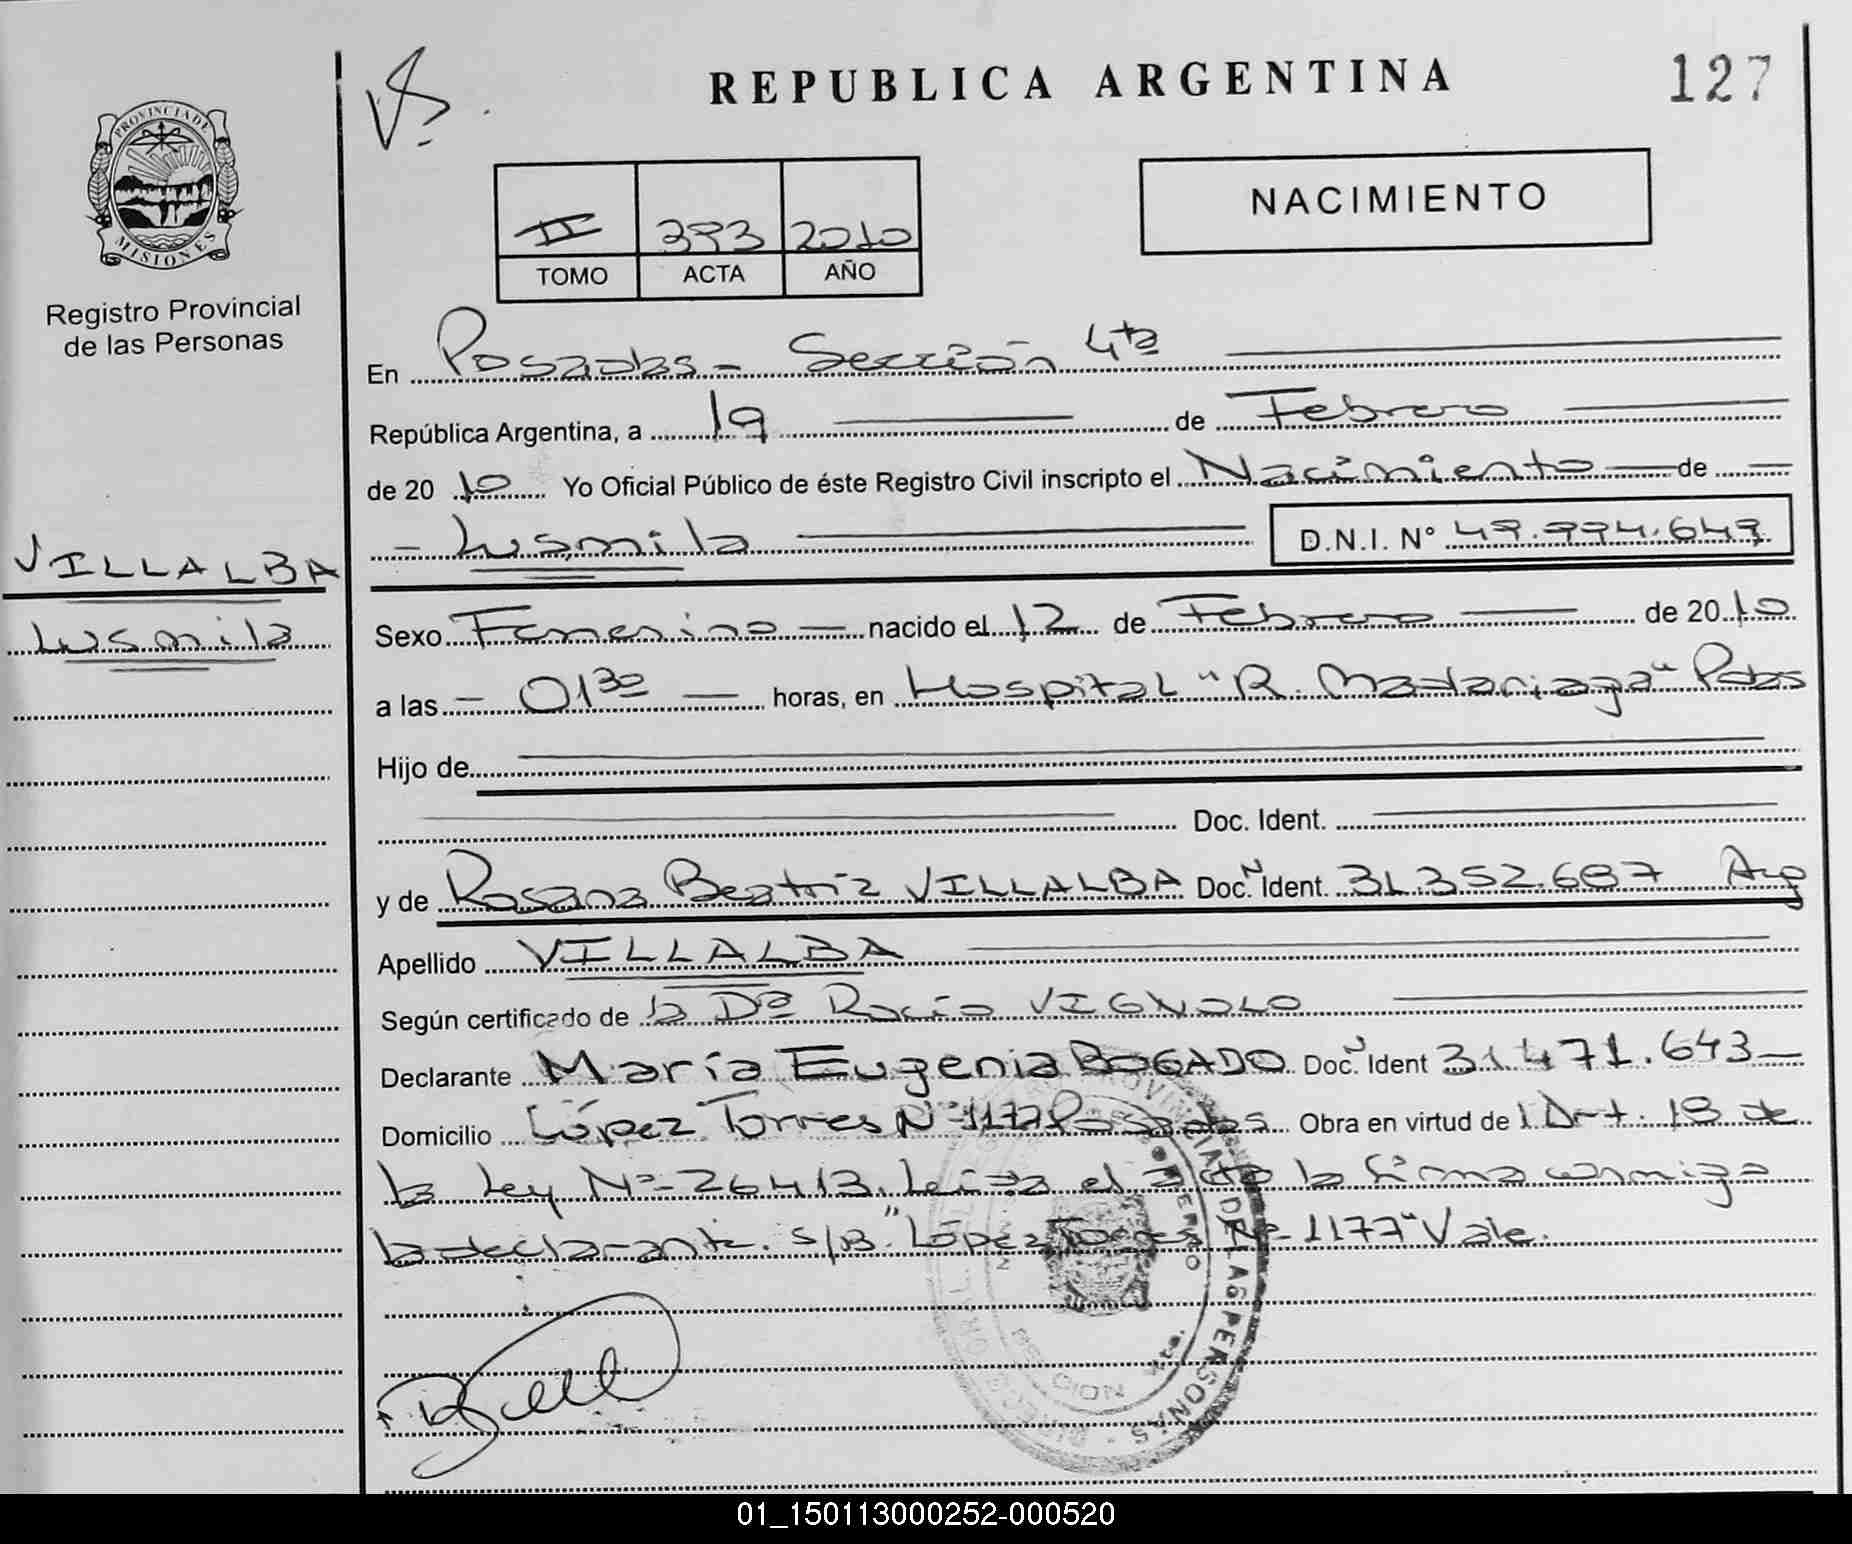 REPUBLICA ARGENTINA
127
PROVINCIA DE
MISIONES
Registro Provincial
de las Personas
NACIMIENTO
II 393 2010
TOMO ACTA AÑO
En Posadas - Sección 4ta
República Argentina, a 19 de Febrero
de 2010 Yo Oficial Público de éste Registro Civil inscripto el Nacimiento de
- Lusmila D.N.I. N° 49.994.649
VILLALBA
Lusmila
Sexo Femenino nacido el 12 de Febrero de 2010
a las - 01³⁰ - horas, en Hospital "R. Madariaga" Pdas
Hijo de
Doc. Ident.
y de Rosana Beatriz VILLALBA Doc. N Ident. 31.352.687 Arg
Apellido VILLALBA
Según certificado de la Dra Rocío VIGNOLO
Declarante María Eugenia BOGADO Doc. N Ident 31.471.643
Domicilio López Torres Nº 1177 Posadas Obra en virtud de l Art. 18 de
la Ley Nº 26413. Leída el acta la firma conmigo
la declarante. S/B "López Torres Nº 1177" Vale.
PERSONAS
01_150113000252-000520